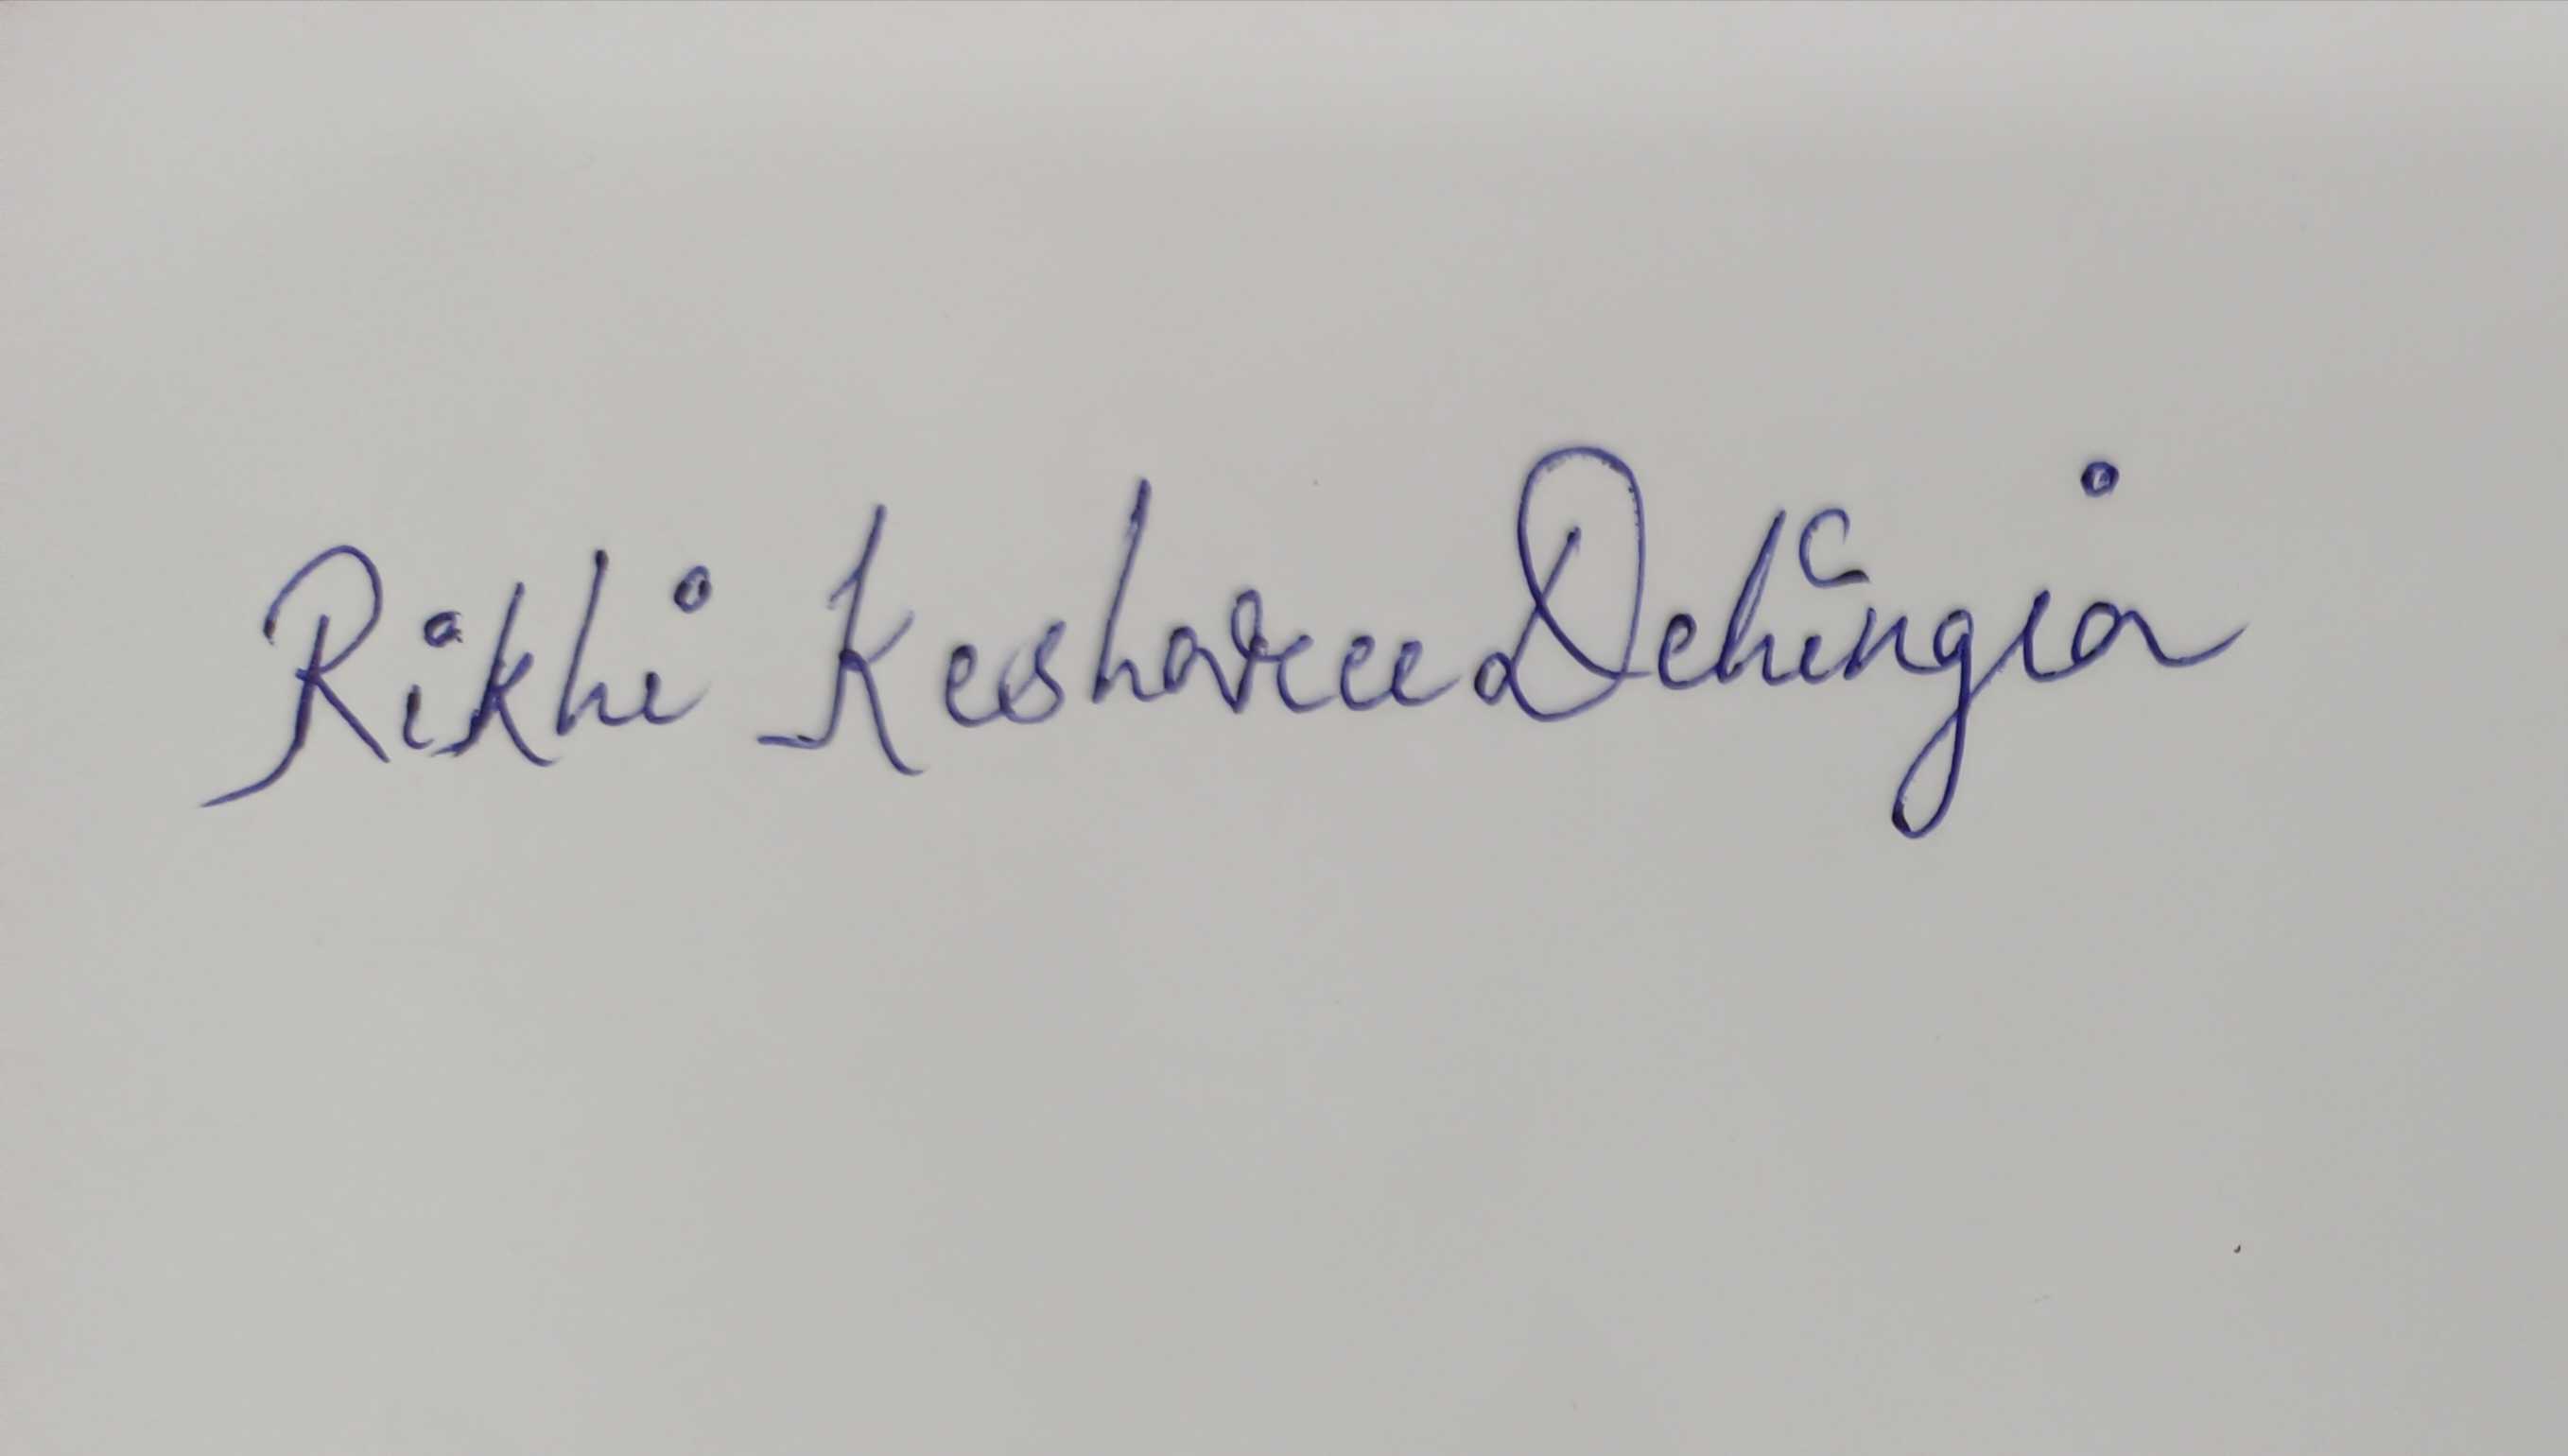 Rikhi Keshavee Dehingia